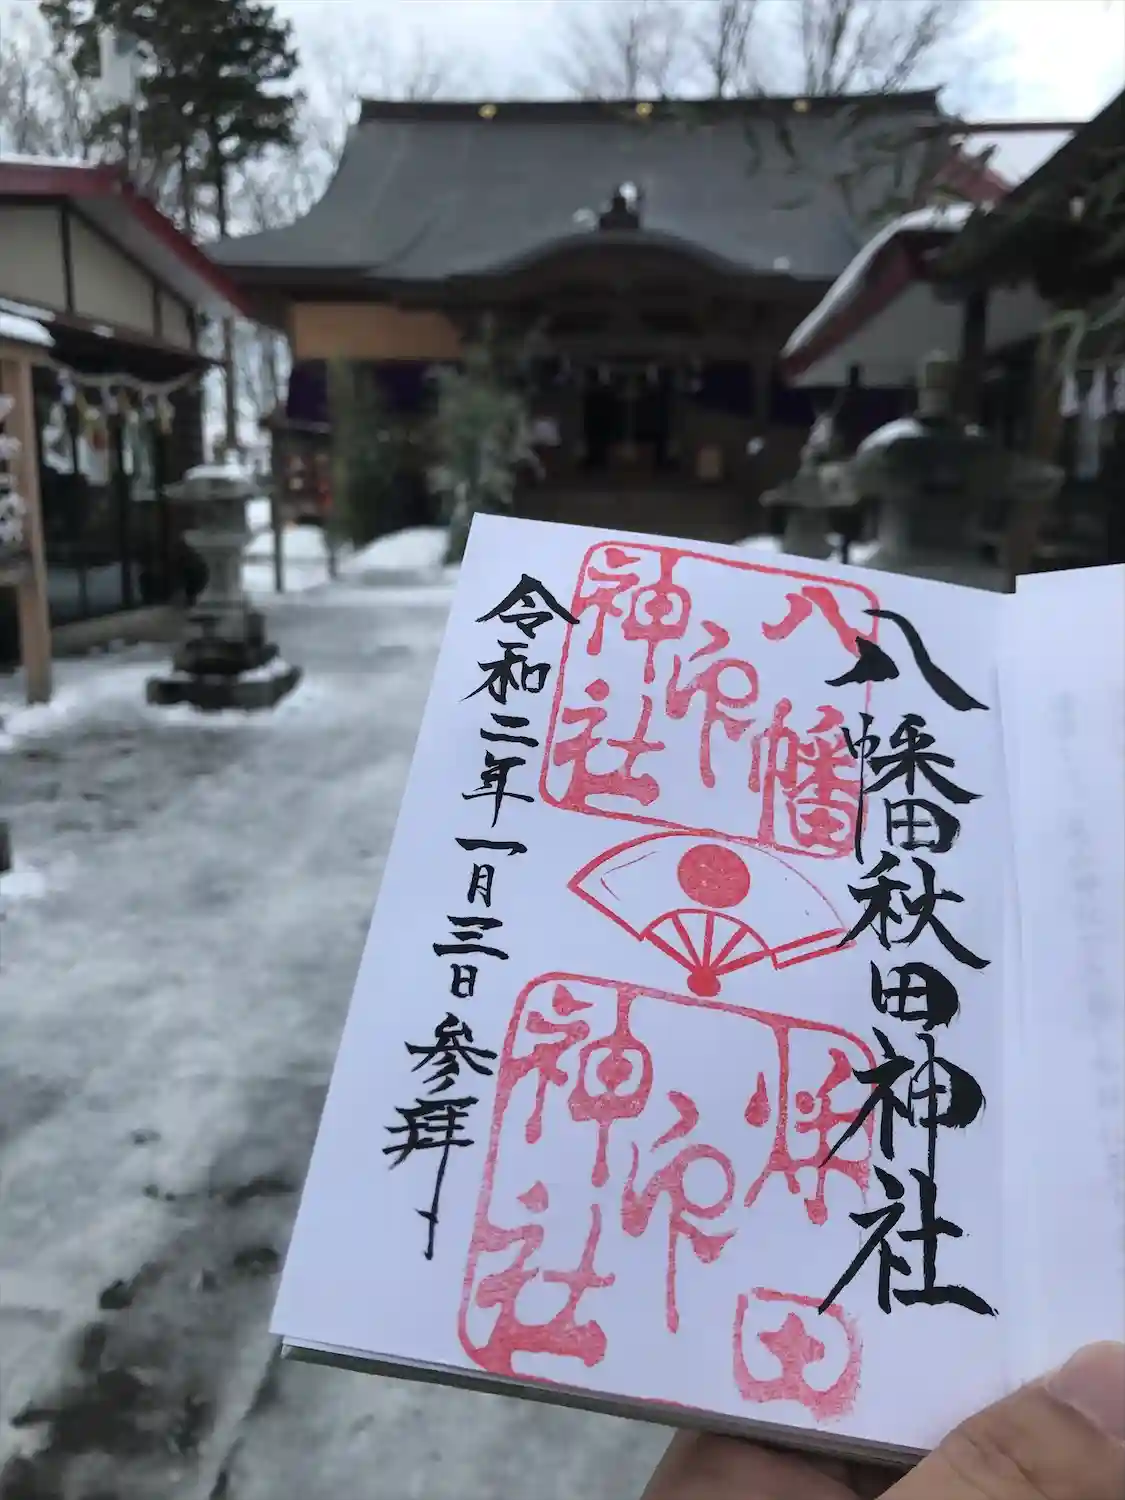 八幡秋田神社
八幡
神社
印
秋田
神社
印
令和二年一月三日参拝